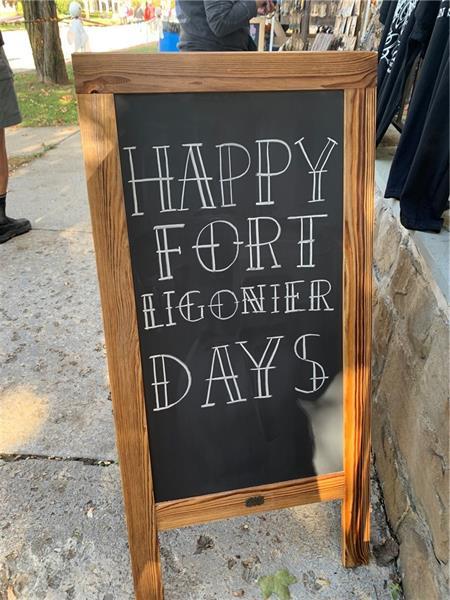 HAPPY
FORT
LIGONIER
DAYS